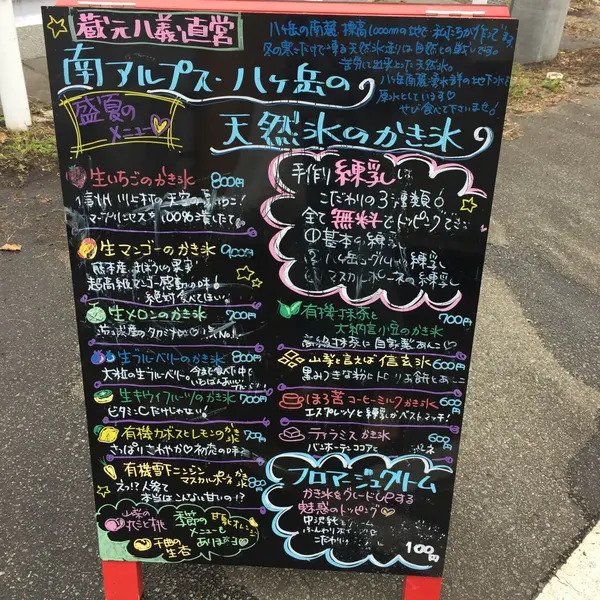 蔵元八義直営
八ヶ岳の南麓 標高1000mの地で私たちが作ってます
冬の寒さだけで凍る天然氷造りは自然との
苦労して出来上がった天然氷。
八ヶ岳南麓
原水としています♡
ぜひ食べて下さいませ!
南アルプス・八ヶ岳の
天然氷のかき氷
盛夏の
メニュー
生いちごのかき氷 800円
信州川上村の
100%
生マンゴーのかき氷 900円
熊本産
超高級マンゴー感動の味!
絶対食べてほしい。
生メロンのかき氷 700円
No.1
生ブルーベリーのかき氷 800円
大粒の生ブルーベリー。
生キウイフルーツのかき氷 700円
ビタミンCだけじゃない!
有機カボスとレモンのかき氷 700円
さっぱりさわやか♡初恋の味
有機雪下ニンジン
マスカルポーネかき氷 800円
えっ!?人参て
本当はこんな甘いの!?
山梨の
桃
季節の
メニューも
あります
手作り練乳は
こだわりの3種類
全て無料でトッピングでき
①基本の練乳
②八ヶ岳ヨーグルト練乳
③マスカルポーネの練乳
有機抹茶と
大納言小豆のかき氷 700円
高級抹茶に自家製あんこ♡
山梨と言えば信玄氷 600円
黒みつきな粉に お餅とあんこ
ほろ苦コーヒーミルクかき氷 600円
エスプレッソと練乳がベストマッチ!
ティラミスかき氷 600円
バンホーテンココアと
フロマージュクリーム
かき氷をグレードUPする
魅惑のトッピング♡
中沢乳
こだわり
100円